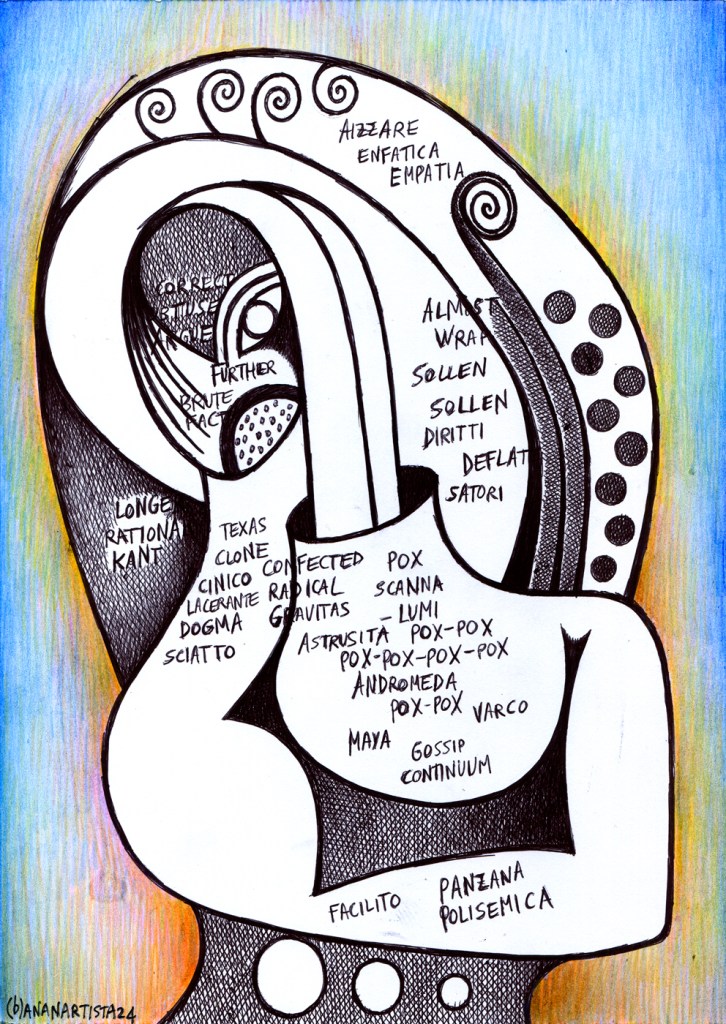 AIZZARE
ENFATICA
EMPATIA
CORRECT
FURTHER
BRUTE
FACT
ALMOST
WRAP
SOLLEN
SOLLEN
DIRITTI
DEFLAT
SATORI
LONGE
RATIONA
KANT
TEXAS
CLONE
CINICO
LACERANTE
DOGMA
SCIATTO
CONFECTED
RADICAL
GRAVITAS
POX
SCANNA
-LUMI
ASTRUSITÀ POX-POX
POX-POX-POX-POX
ANDROMEDA
POX-POX VARCO
MAYA
GOSSIP
CONTINUUM
FACILITO
PANZANA
POLISEMICA
(b)ANANARTISTA24